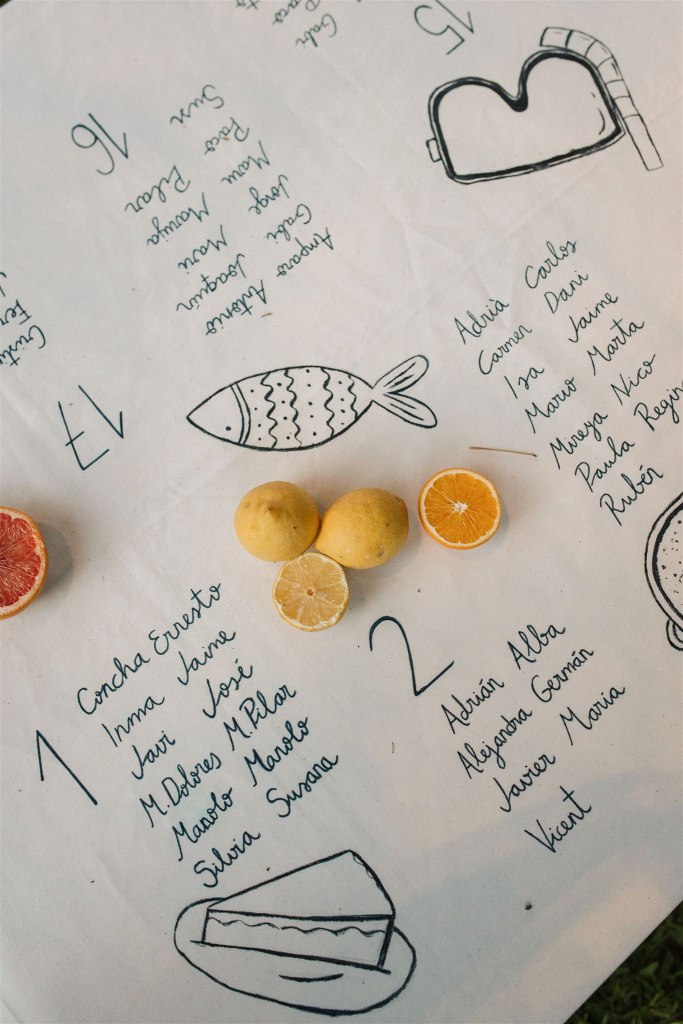 15
Gabi
Paco
16
Amparo Antonio
Gabi Joaquín
Jorge Mari
Manu Maruja
Paco Pilar
Susi
17
Adrià Carlos
Carmen Dani
Isa Jaime
Mario Marta
Mireya Nico
Paula Regin
Rubén
1
Concha Ernesto
Inma Jaime
Javi José
M.Dolores M.Pilar
Manolo Manolo
Silvia Susana
2
Adrián Alba
Alejandra Germán
Javier Maria
Vicent